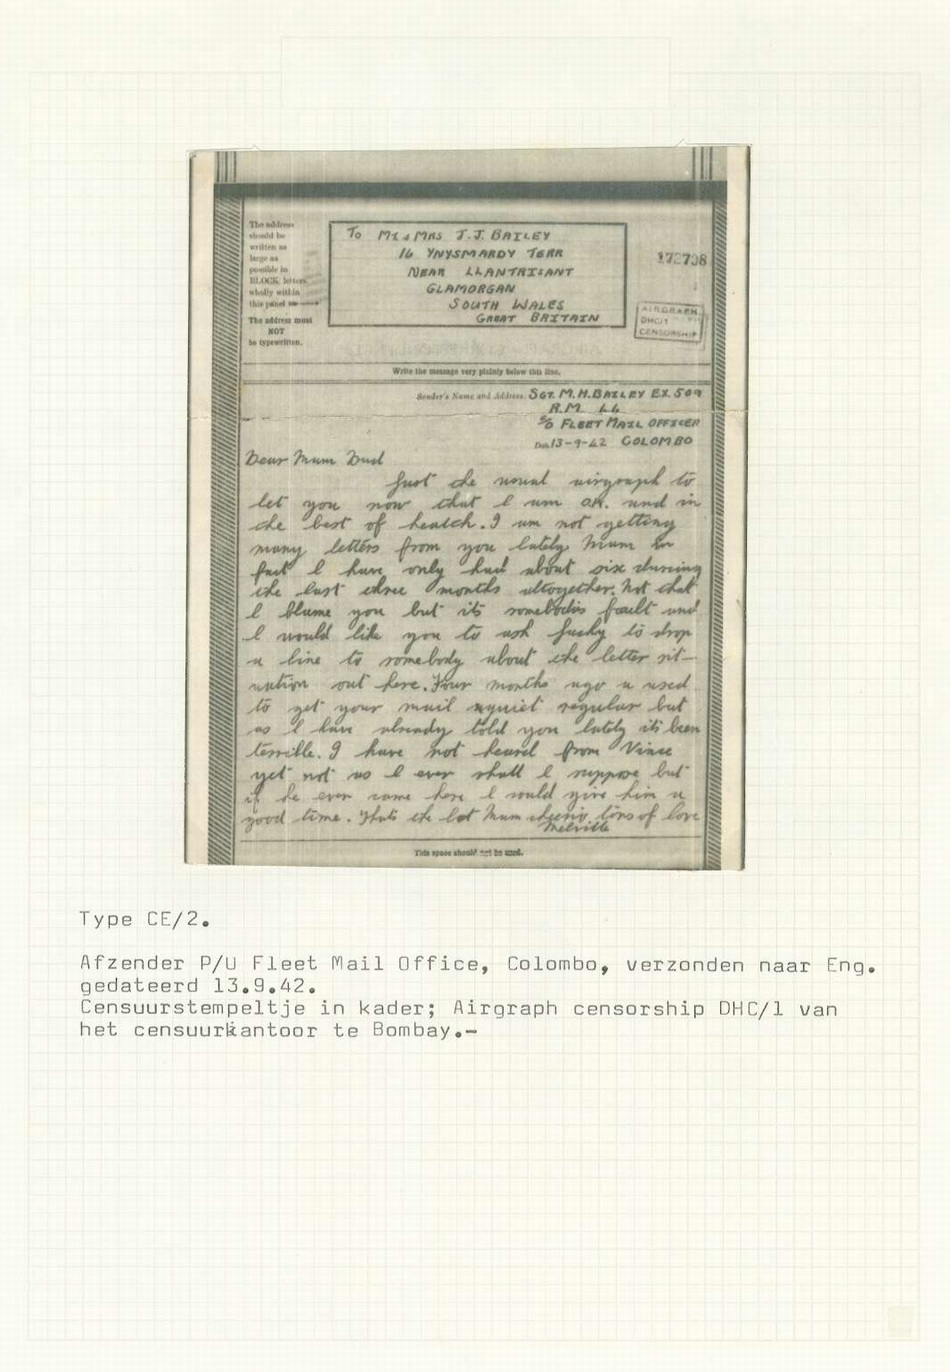 The address
should be
written as
large as
possible in
BLOCK letters
wholly within
this panel
The address must
NOT
be typewritten.
To Mr & Mrs J.J. BAILEY
16 YNYSMARDY TERR
NEAR LLANTRISANT
GLAMORGAN
SOUTH WALES
GREAT BRITAIN
172798
AIRGRAPH
DHC/1
CENSORSHIP
Write the message very plainly below this line.
Sender's Name and Address. SGT. M.H. BAILEY EX. 509
R.M.
c/o FLEET MAIL OFFICER
Date 13-9-42 COLOMBO
Dear Mum Dad
Just the usual airgraph to
let you now that I am O.K. and in
the best of health. I am not getting
many letters from you lately Mum in
fact I have only had about six during
the last three months altogether. Not that
I blame you but its somebodis fault and
I would like you to ask to drop
a line to somebody about the letter sit-
uation out here. Four months ago u used
to get your mail regular but
as I have already told you lately its been
terrible. I have not heard from Vince
yet not as I ever shall I suppose but
if he ever came here I would give him a
good time. Thats the lot Mum cheerio tons of love
Melville
This space should not be used.
Type CE/2.
Afzender P/U Fleet Mail Office, Colombo, verzonden naar Eng.
gedateerd 13.9.42.
Censuurstempeltje in kader; Airgraph censorship DHC/1 van
het censuurkantoor te Bombay.-